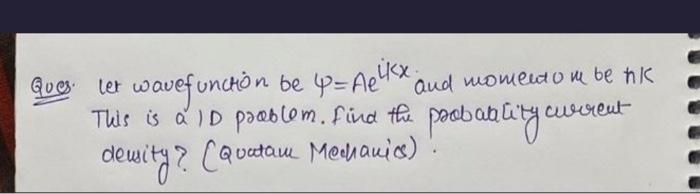 Ques. let wavefunction be ψ=Ae^ikx and momentom be ħk
This is a 1D problem. find the probability current
density? (Quatam Mechanics).